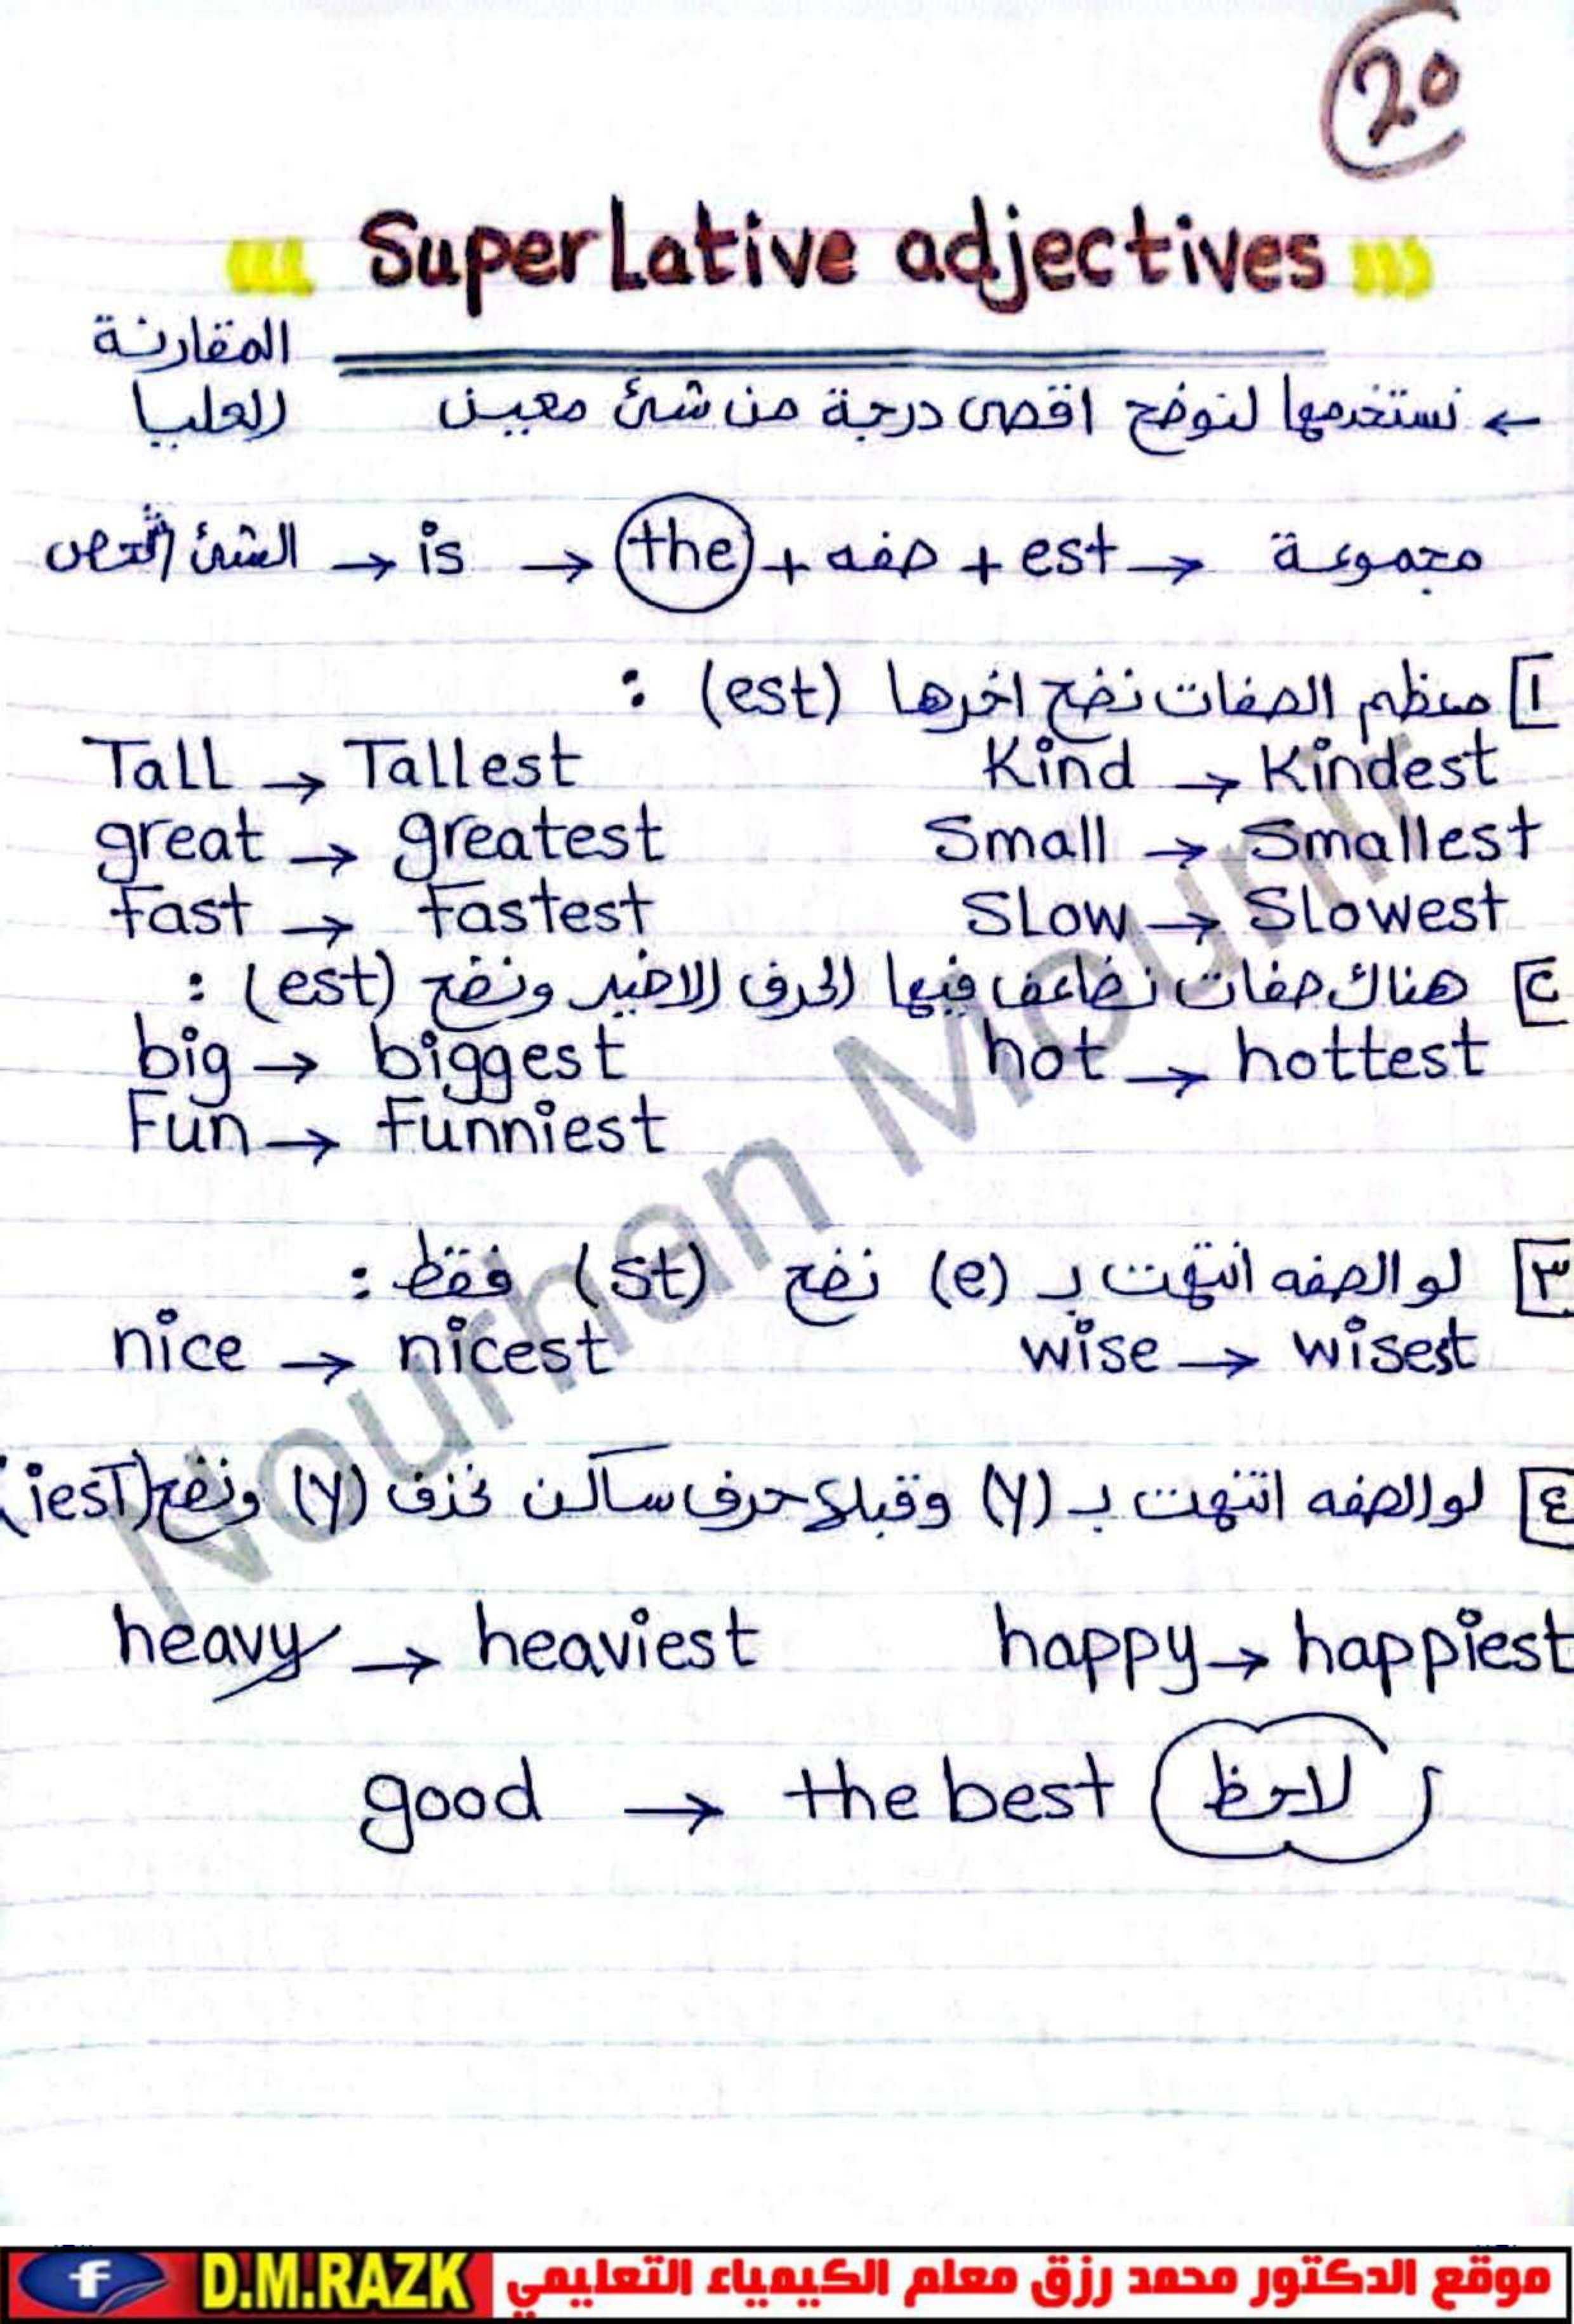 20
SuperLative adjectives
المقارنة
العليا
← نستخدمها لنوضح اقصى درجة من شئ معين
الشئ / الشخص → is → the + صفه + est → مجموعة
١ معظم الصفات نضع اخرها (est) :
Tall → Tallest Kind → Kindest
great → greatest Small → Smallest
Fast → Fastest SLow → SLowest
٢ هناك صفات نضاعف فيها الحرف الاخير ونضع (est) :
big → biggest hot → hottest
Fun → Funniest
٣ لو الصفه انتهت بـ (e) نضع (st) فقط :
nice → nicest wise → wisest
٤ لو الصفه انتهت بـ (y) وقبلها حرف ساكن نحذف (y) ونضع (iest)
heavy → heaviest happy → happiest
good → the best لاحظ
Nourhan Mounir
f D.M.RAZK موقع الدكتور محمد رزق معلم الكيمياء التعليمي